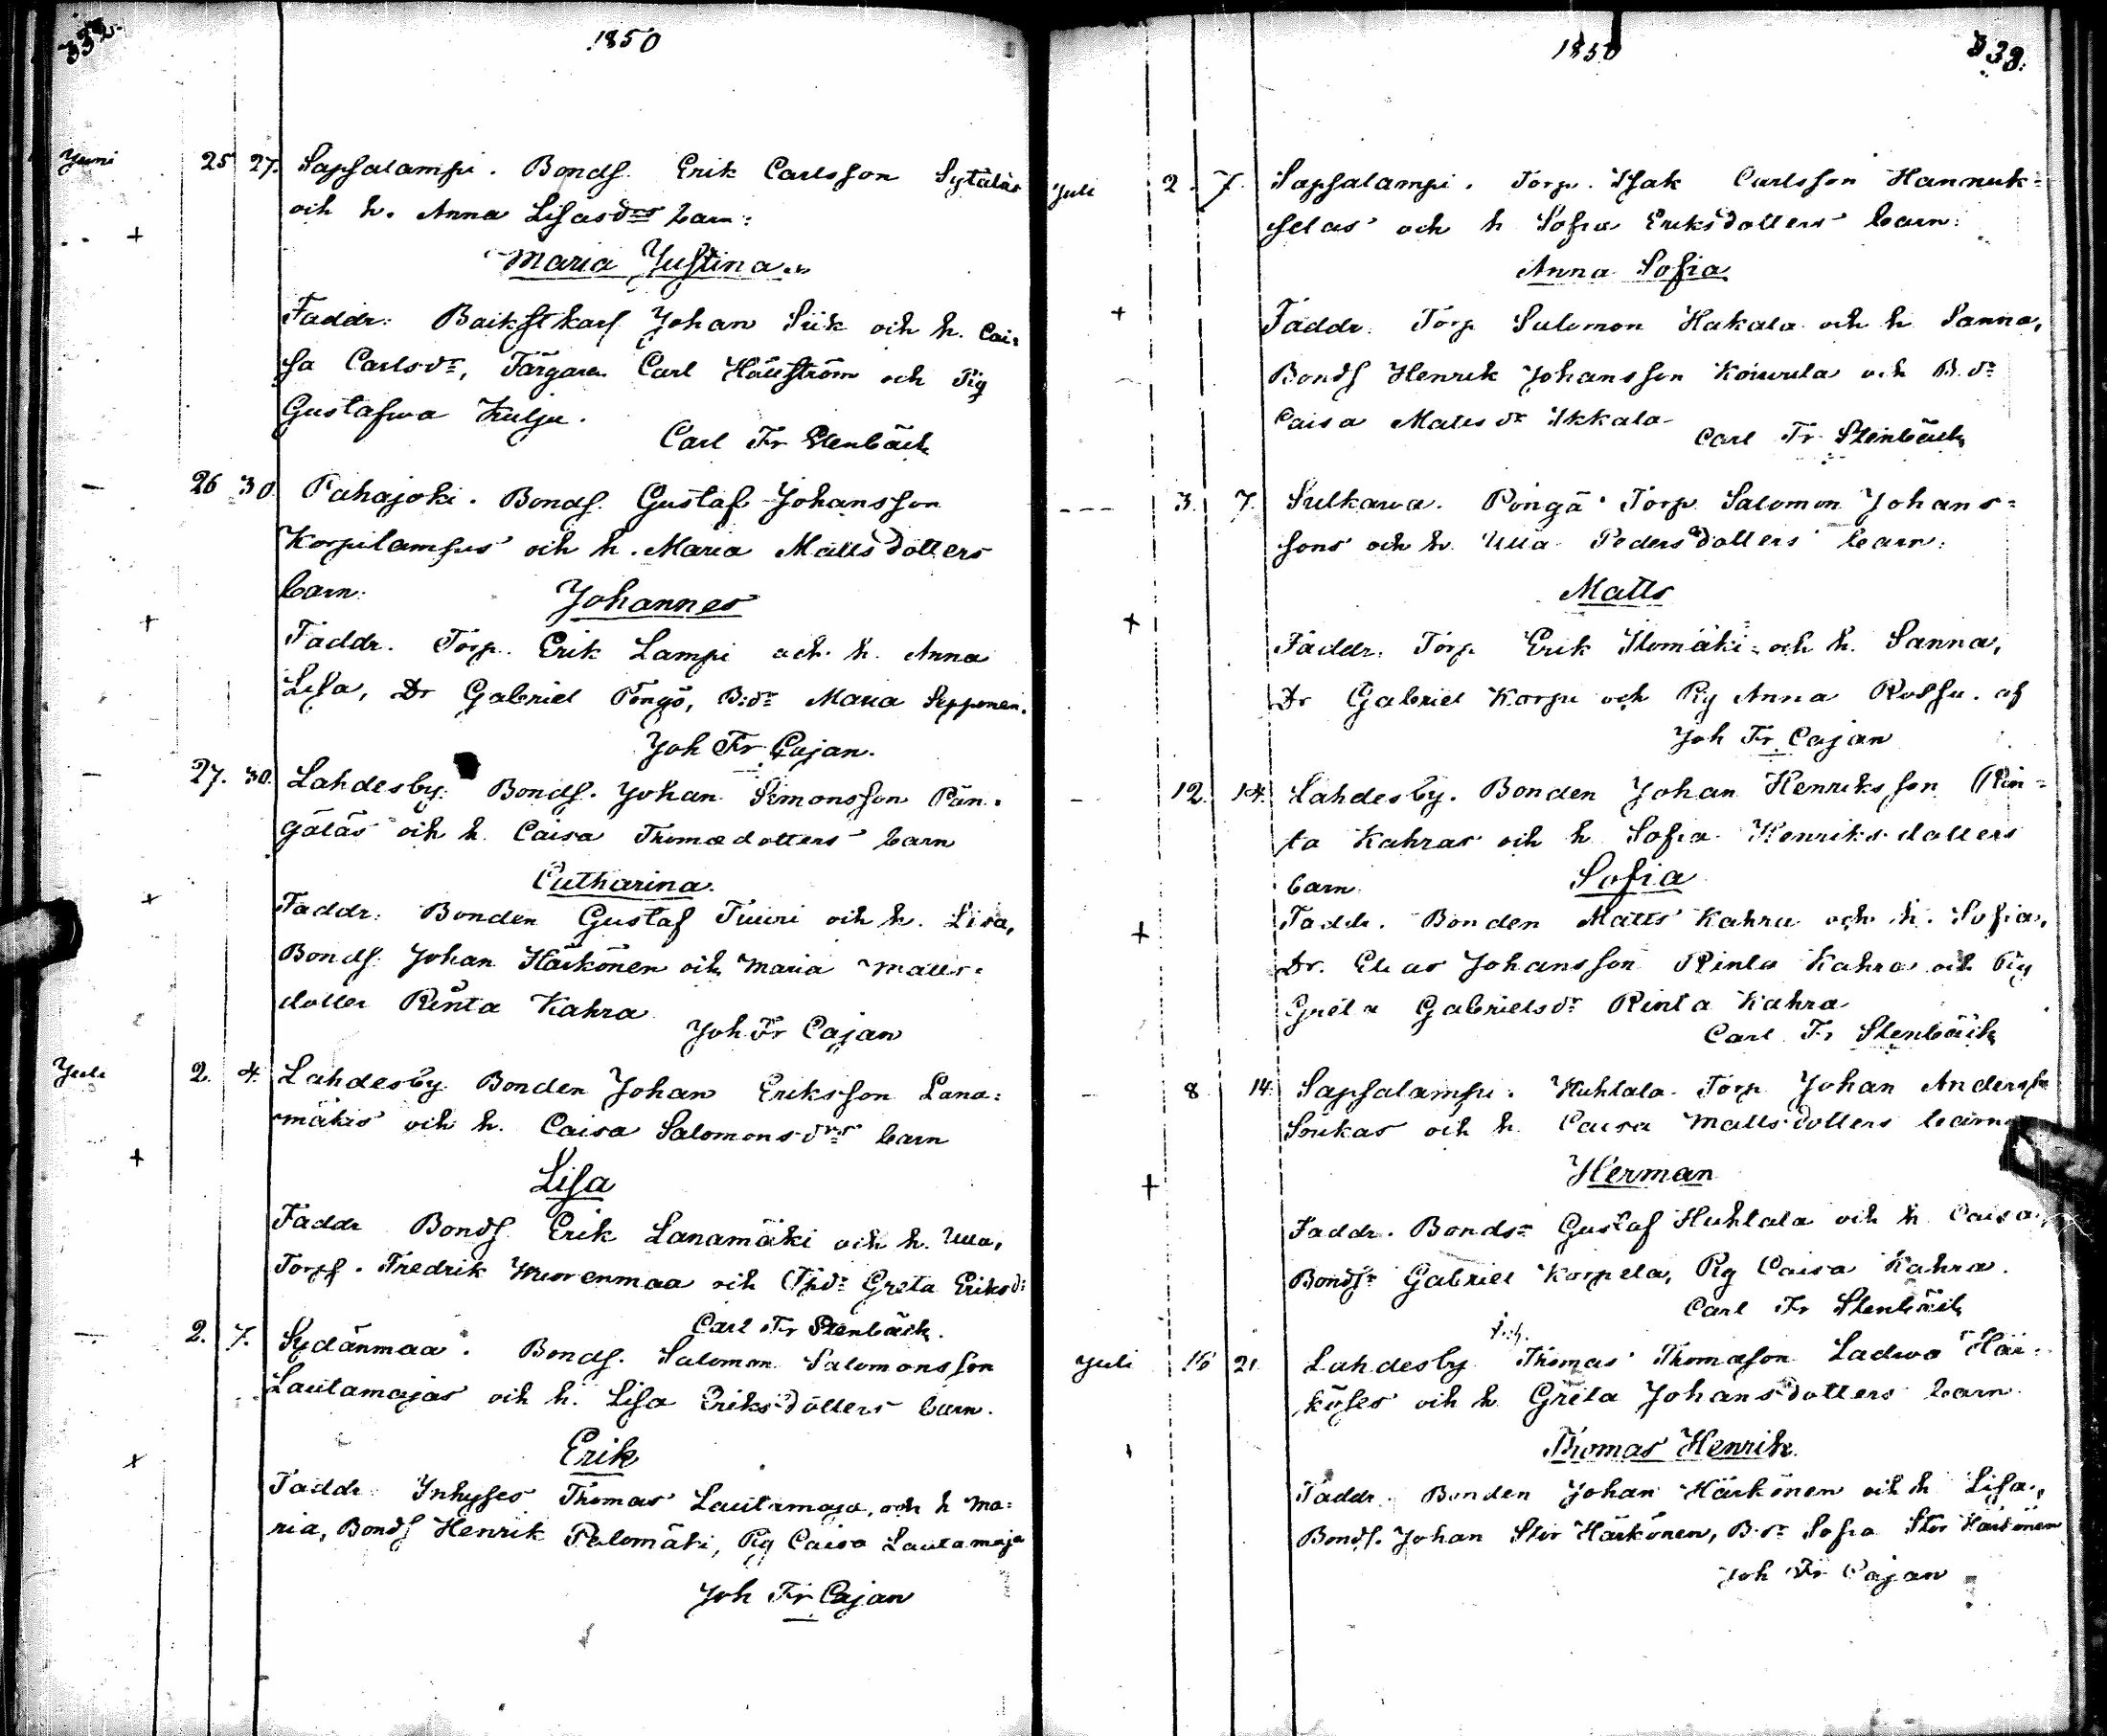 332.
1850
Juni 25 27. Sapsalampi. Bonds. Erik Carlsson Sytäläs
och h. Anna Lisasdrs barn:
Maria Justina.
Faddr: Johan Siik och h. Cai=
sa Carlsdr, Färgaren Carl Hällström och Pig
Gustafwa Kulju.
Carl Fr Stenbäck
26 30. Pahajoki. Bonds. Gustaf Johansson
Korpilampis och h. Maria Mattsdotters
barn. Johannes
Faddr. Torp. Erik Lampi och h. Anna
Lisa, Dr Gabriel Pöngö, B:dr Maria Sepponen.
Joh Fr Cajan.
27. 30. Lahdesby. Bonds. Johan Simonsson Pän=
gäläs och h. Caisa Thomædotters barn
Catharina.
Faddr: Bonden Gustaf Tuuri och h. Lisa,
Bonds. Johan Härkönen och Maria Matts=
dotter Rinta Kahra
Joh. Fr Cajan
Juli 2. 4. Lahdesby Bonden Johan Eriksson Lana=
mäkis och h. Caisa Salomonsdrs barn
Lisa
Faddr Bonds Erik Lanamäki och h. Ulla,
Torps. Fredrik Wuorenmaa och Tpdr Greta Eriksdr
Carl Fr Stenbäck.
2. 7. Sydänmaa. Bonds. Salomon Salomonsson
Lautamajas och h. Lisa Eriksdotters barn.
Erik
Faddr. Inhyses Thomas Lautamaja, och h Ma=
ria, Bonds Henrik Palomäki, Pig Caisa Lautamaja
Joh Fr Cajan
1850
333.
Juli 2. 7. Sapsalampi. Torp. Isak Carlsson Hannuk=
selas och h Sofia Eriksdotters barn:
Anna Sofia
Faddr. Torp Salomon Hakala och h Sanna,
Bonds Henrik Johansson Koiwula och B. dr
Caisa Matts dr Ikkala
Carl Fr Stenbäck
3. 7. Sulkawa. Pöngä Torp. Salomon Johans=
sons och h. Ulla Pedersdotters barn:
Matts
Faddr. Torp Erik Ilomäki och h. Sanna,
Dr Gabriel Korpi och Pig Anna
Joh Fr Cajan
12. 14. Lahdesby. Bonden Johan Henriksson Rin=
ta Kahras och h Sofia Henriksdotters
barn. Sofia
Faddr. Bonden Matts Kahra och h. Sofia,
Dr. Elias Johansson Rinta Kahra och Pig
Greta Gabrielsdr Rinta Kahra
Carl Fr Stenbäck
8 14. Sapsalampi. Huhtala Torp Johan Anderss
Soukas och h. Caisa Mattsdotters barn
Herman
Faddr. Bonds Gustaf Huhtala och h Caisa,
Bonds Gabriel Korpela, Pig Caisa Kahra.
Carl Fr Stenbäck
Inh.
Juli 16 21 Lahdesby Thomas Thomasson Ladwa Här=
köses och h Greta Johansdotters barn
Thomas Henrik
Faddr. Bonden Johan Härkönen och h Lisa,
Bonds. Johan Stor Härkönen, B. dr Sofia Stor Härkönen
Joh Fr Cajan